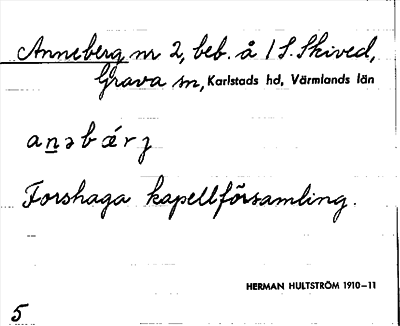 Anneberg nr 2, beb. å 1 S. Skived,
Grava sn, Karlstads hd, Värmlands län
an̲əbǽrʒ
Forshaga kapellförsamling.
HERMAN HULTSTRÖM 1910–11
5